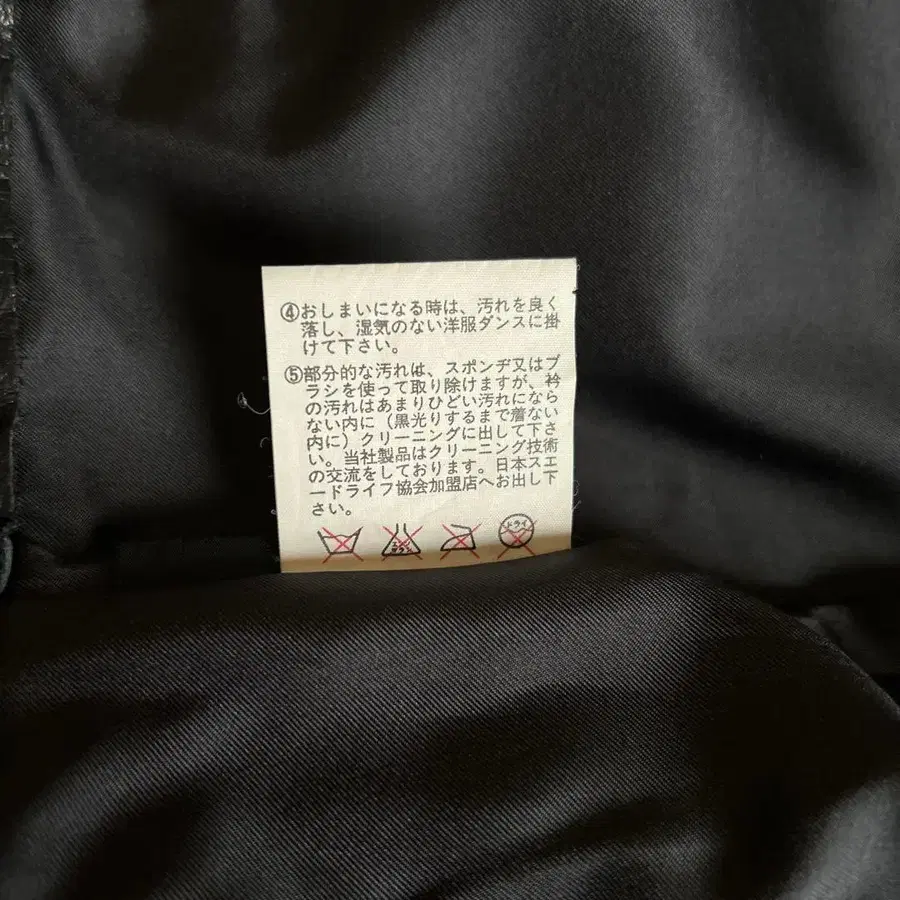 ④おしまいになる時は、汚れを良く
落し、湿気のない洋服ダンスに掛
けて下さい。
⑤部分的な汚れは、スポンヂ又はブ
ラシを使って取り除けますが、衿
の汚れはあまりひどい汚れになら
ない内に（黒光りするまで着ない
内に）クリーニングに出して下さ
い。当社製品はクリーニング技術
の交流をしております。日本スエ
ードライフ協会加盟店へお出し下
さい。
エンソ サラシ ドライ